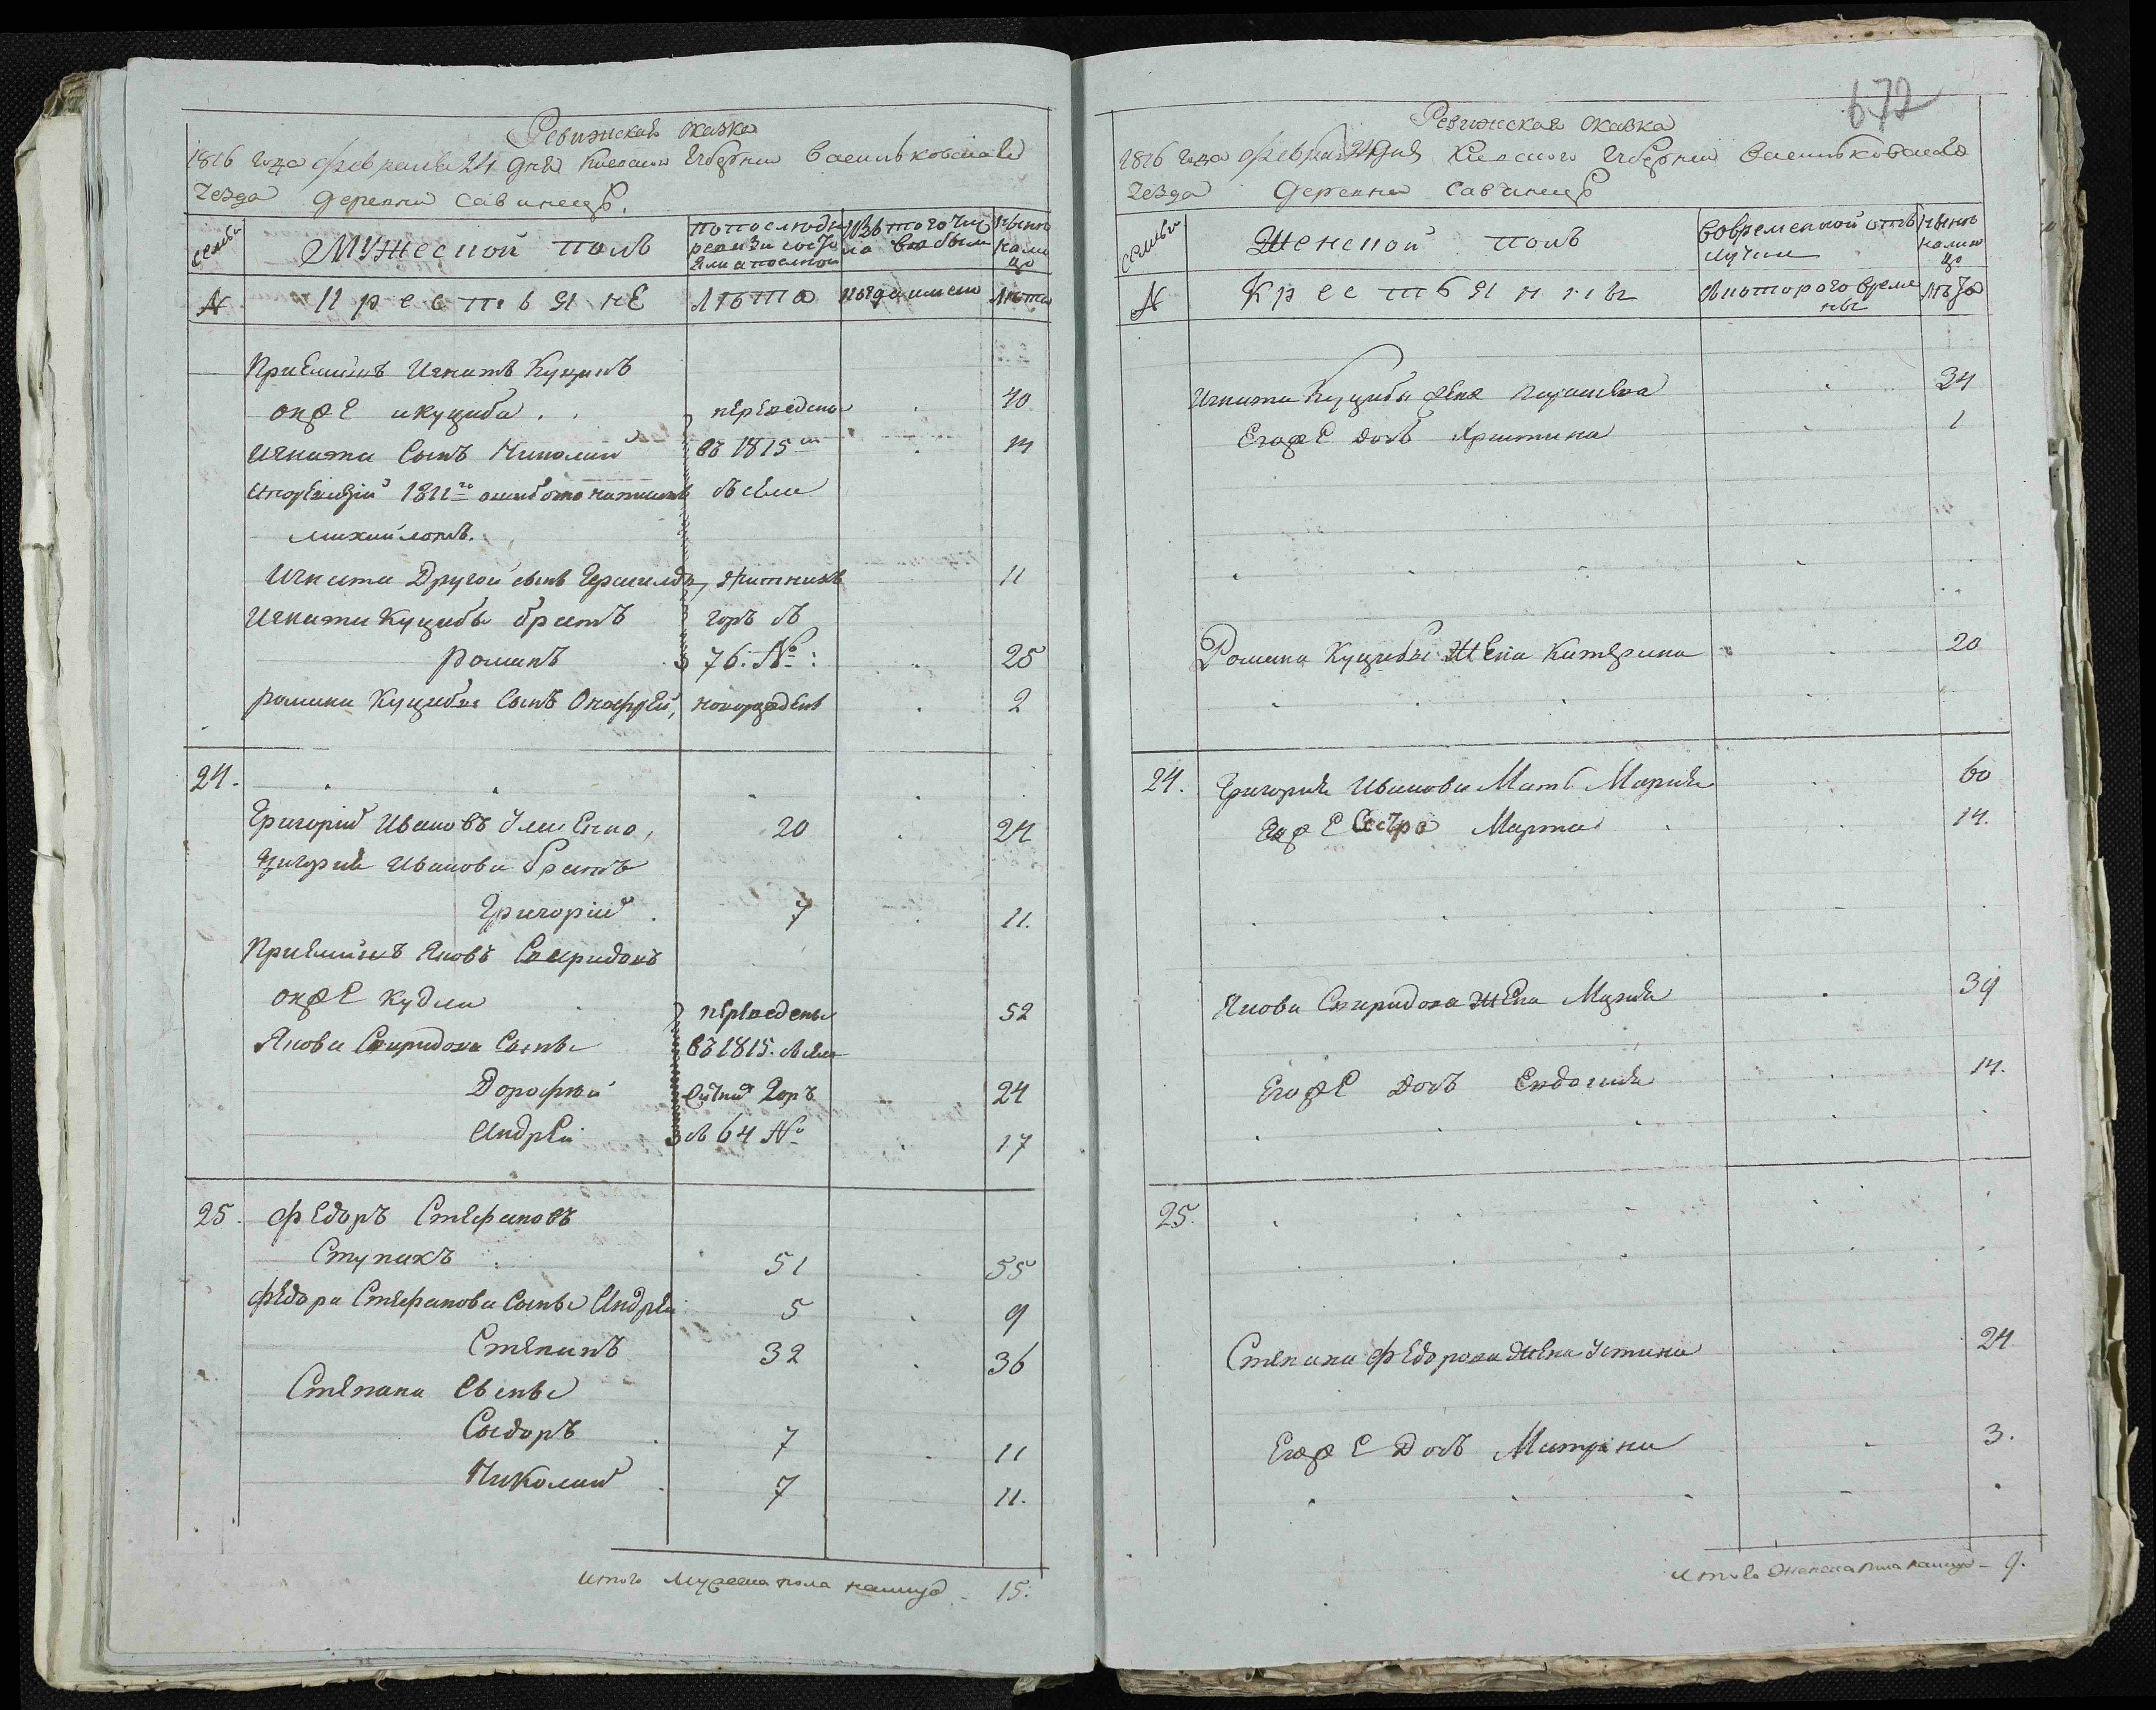 Ревизская сказка
1816 года февраля 24 дня Киевской Губернии Васильковскаго
уезда деревни Савинецъ.
семьи
Мужеской полъ
по последней ревизии состояло и после оной
Изъ того числа выбыло
Ныне налицо
№
Крестьяне
Лета
когда именно
Лета
Приемышъ Игнатъ Куциб
онъ же и Куциба
переведены
40
Игната сынъ Николай
въ 1815м
14
1811го ошибочно написанъ
михайломъ.
Игната Другой сынъ
11
Игната Куцибы братъ
Романъ
76. №:
25
Романа Куцибы сынъ Онофрей,
новорожденъ
2
24.
Григорій Ивановъ
20
24
Григорія Иванова братъ
Григорій
7
11.
Приемышъ Яковъ Спиридонъ
онже Кудла
переведены
52
Якова Спиридона сынъ
въ 1815.
Дорофей
24
Андрей
64 №
17
25.
Федоръ Стефановъ
Ступакъ
51
55
Федора Стефанова сынъ Андрей
5
9
Степанъ
32
36
Степана сынъ
Сыдоръ
7
11
Николай
7
11.
Итого Мужеска пола налицо - 15.
672
Ревизская сказка
1816 года февраля 24 дня Киевской Губернии Васильковскаго
уезда деревни Савинецъ
семьи
Женской полъ
Во временной отлучки
Ныне налицо
№
Крестьянки
Съ котораго времени
Лета
Игната Куцибы жена
34
Егоже дочь Христина
1
Романа Куцибы жена Катерина
20
24.
Григорія Иванова Мать Марія
60
Егоже Сестра Марта
14.
Якова Спиридона жена Марія
39
Егоже дочь Евдокия
14.
25.
Степана Федорова жена Устина
24
Егоже Дочь Матрона
3.
Итого женска пола налицо - 9.